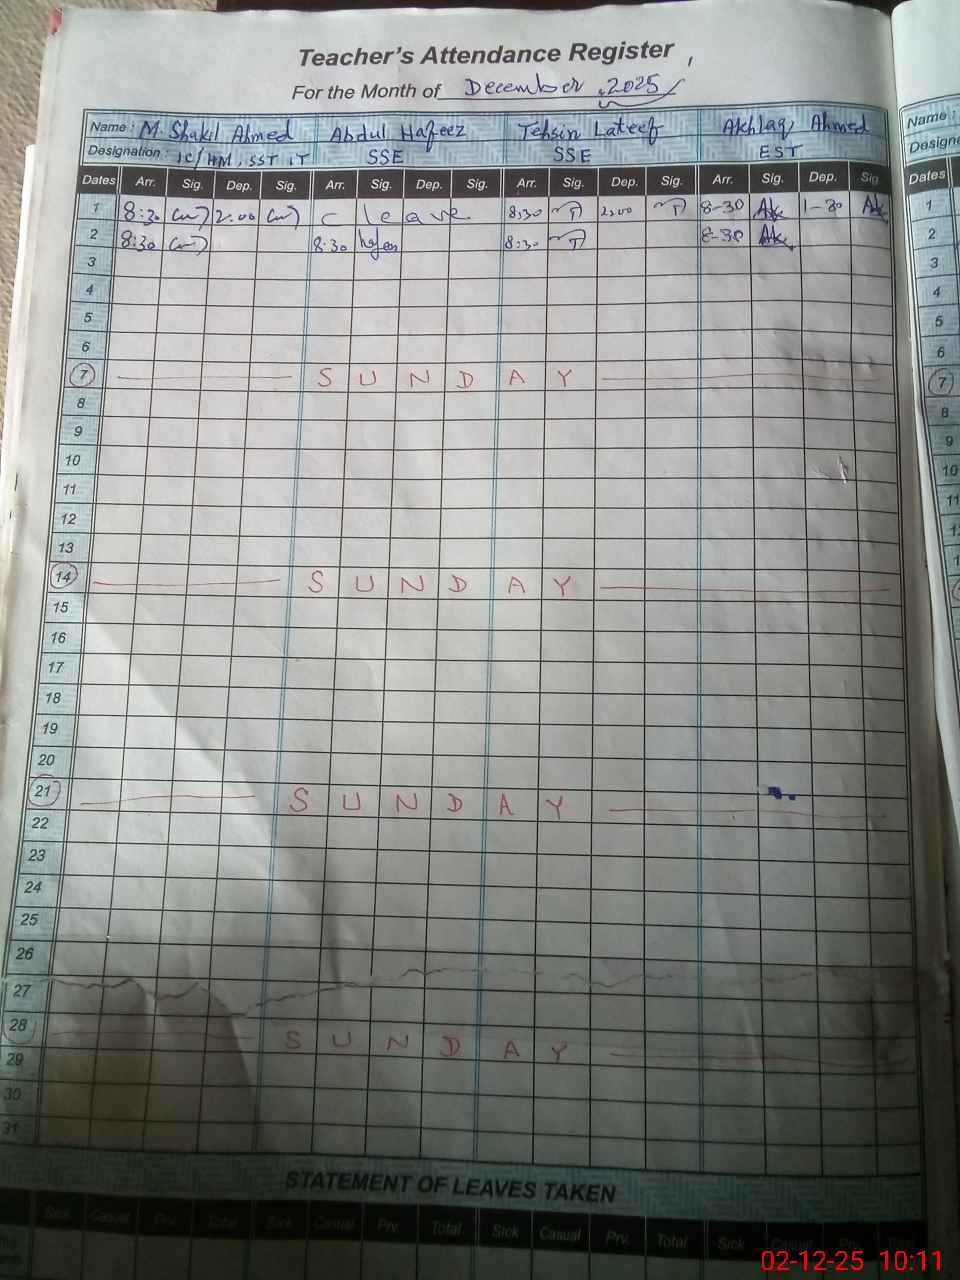 Teacher's Attendance Register
For the Month of December, 2025
Name: M. Shakil Ahmed Abdul Hafeez Tehsin Lateef Akhlaq Ahmed
Designation: IC/HM, SST IT SSE SSE EST
Dates Arr. Sig. Dep. Sig. Arr. Sig. Dep. Sig. Arr. Sig. Dep. Sig. Arr. Sig. Dep. Sig
1 8:30 2:00 C leave 8:30 2:00 8-30 Ak 1-30 Ak
2 8:30 8:30 hafeez 8:30 8-30 Ak
3
4
5
6
7 SUNDAY
8
9
10
11
12
13
14 SUNDAY
15
16
17
18
19
20
21 SUNDAY
22
23
24
25
26
27
28 SUNDAY
29
30
31
STATEMENT OF LEAVES TAKEN
Sick Casual Prv. Total Sick Casual Prv. Total Sick Casual Prv. Total Sick Casual Prv. Total
Name:
Designe
Dates
1
2
3
4
5
6
7
8
9
10
11
02-12-25 10:11